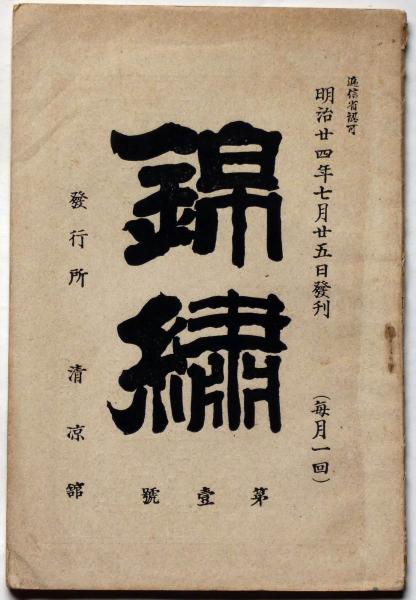 逓信省認可
明治廿四年七月廿五日發刊　(每月一回)
錦繡
第壹號
發行所　清凉舘